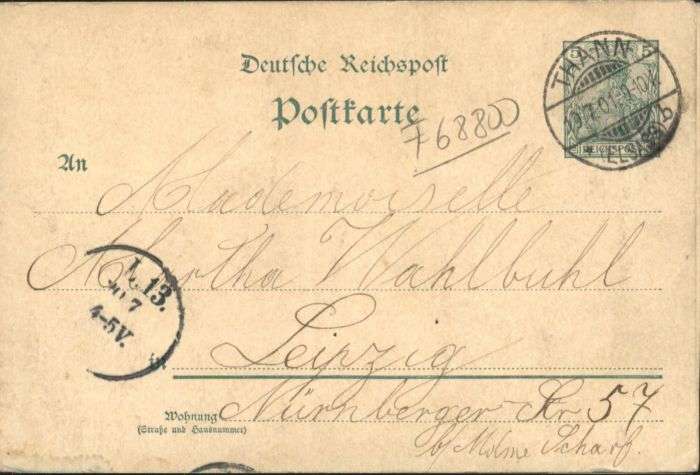 Deutsche Reichspost
Postkarte
5
REICHSPOST
THANN
19.7.01.9-10V
(ELSASS)
F 68800
An
Mademoiselle
Martha Wahlbuhl
L. 13.
20.7
4-5V.
Leipzig
Wohnung
(Straße und Hausnummer)
Nürnberger Str 57
b/ Mdme Scharf.